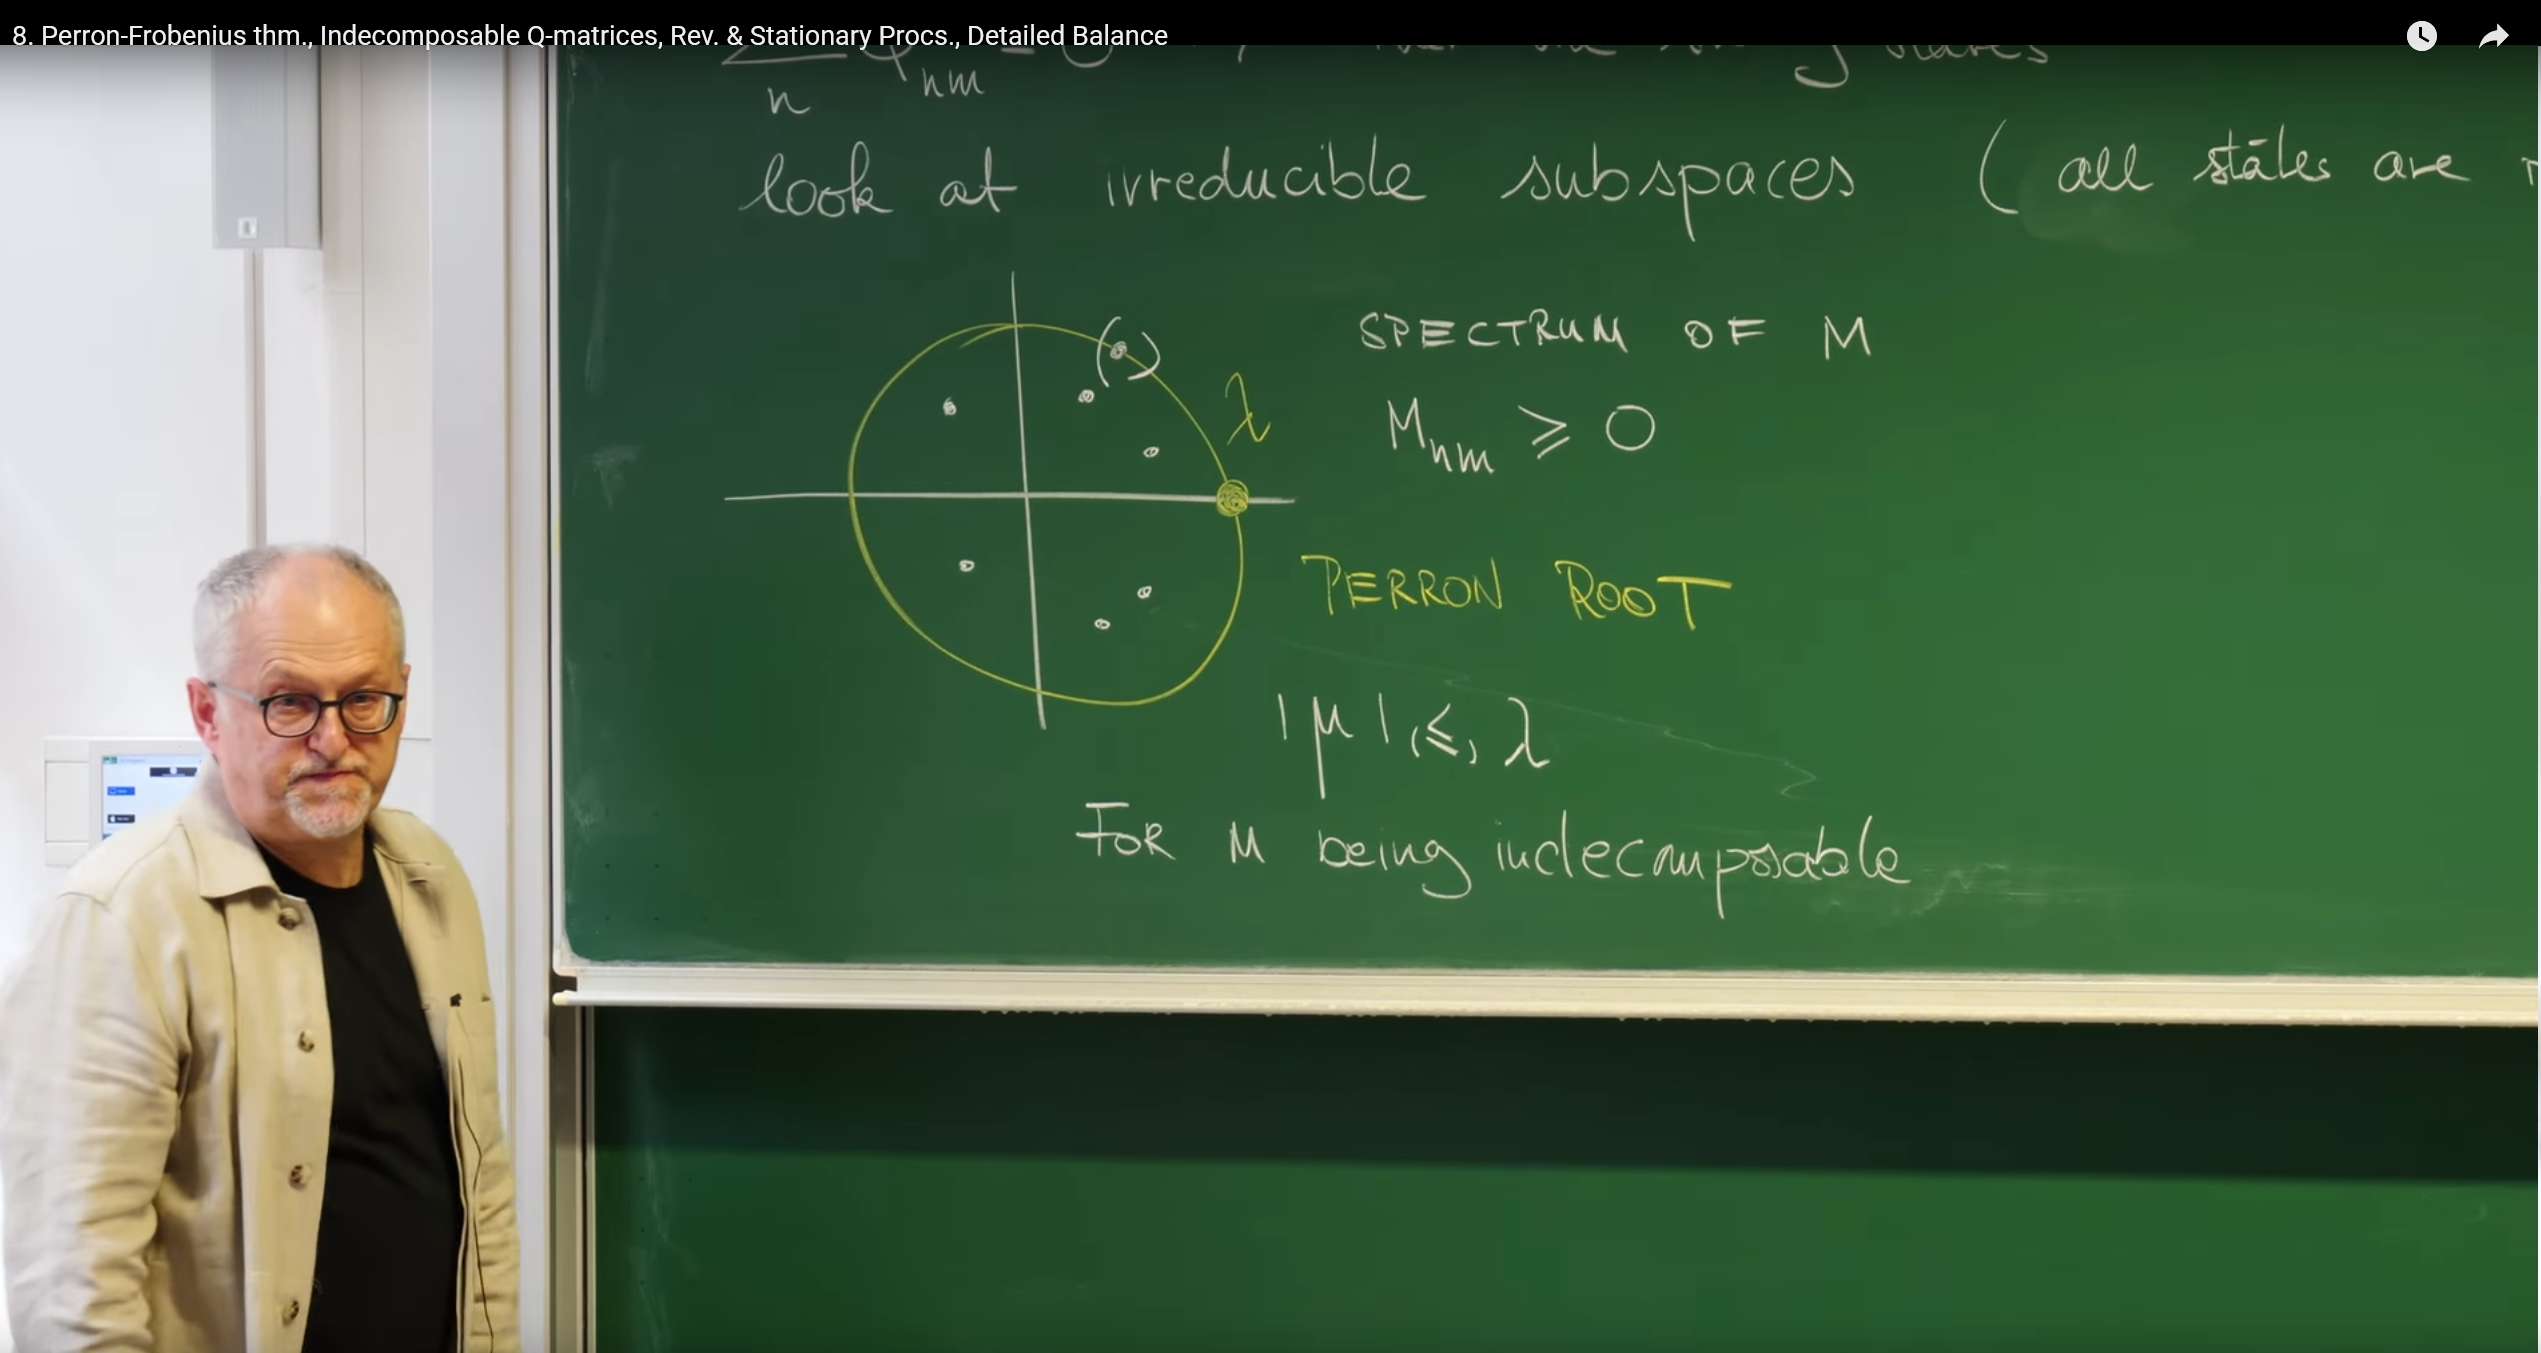 8. Perron-Frobenius thm., Indecomposable Q-matrices, Rev. & Stationary Procs., Detailed Balance
n nm = states
look at irreducible subspaces ( all states are
( )
SPECTRUM OF M
λ
Mnm ⩾ 0
PERRON ROOT
|μ| (⩽) λ
FOR M being indecomposable